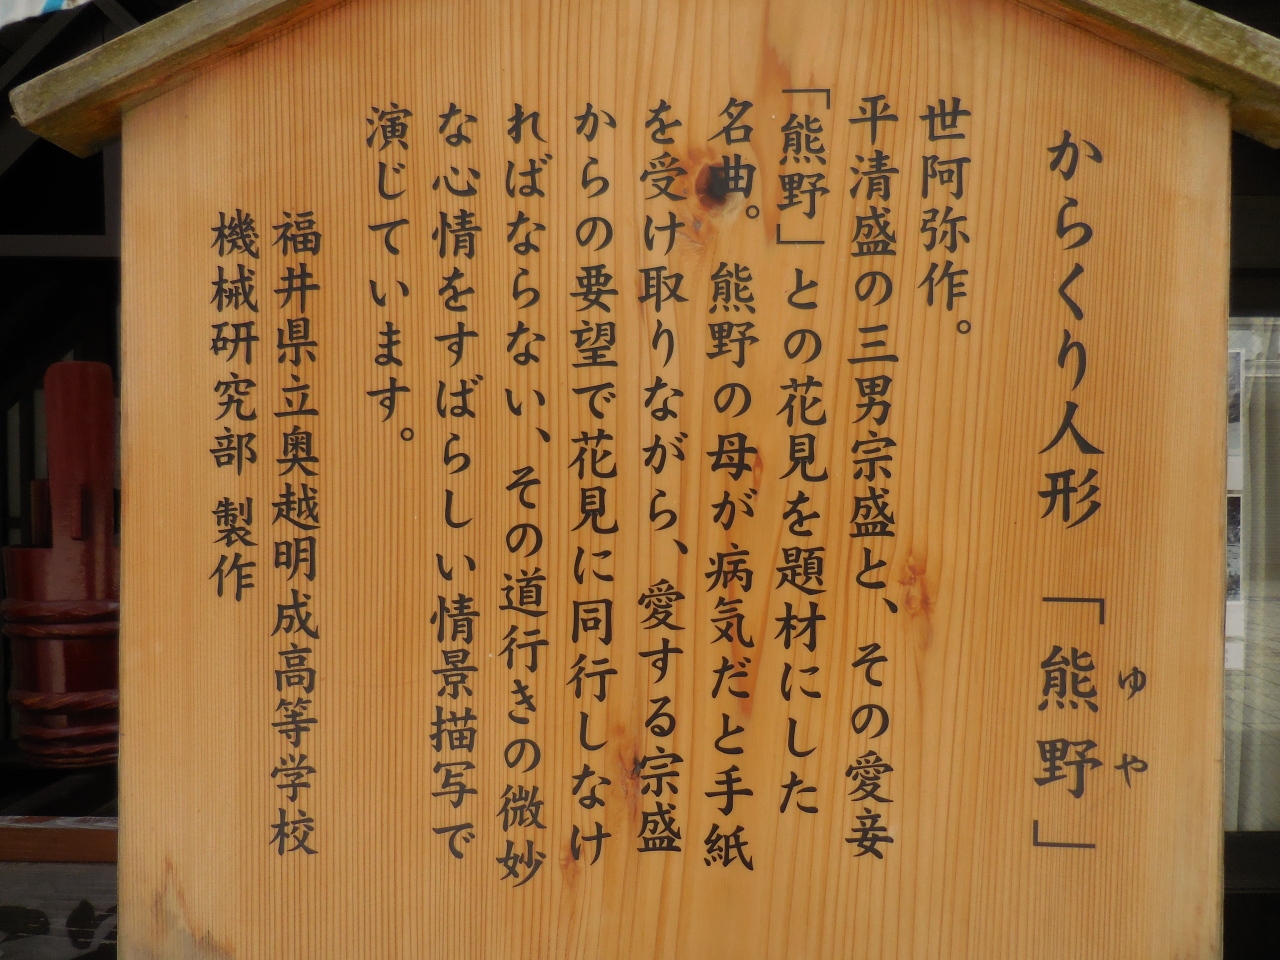 からくり人形 「熊野」
ゆや
世阿弥作。
平清盛の三男宗盛と、その愛妾
「熊野」との花見を題材にした
名曲。熊野の母が病気だと手紙
を受け取りながら、愛する宗盛
からの要望で花見に同行しなけ
ればならない、その道行きの微妙
な心情をすばらしい情景描写で
演じています。
福井県立奥越明成高等学校
機械研究部 製作